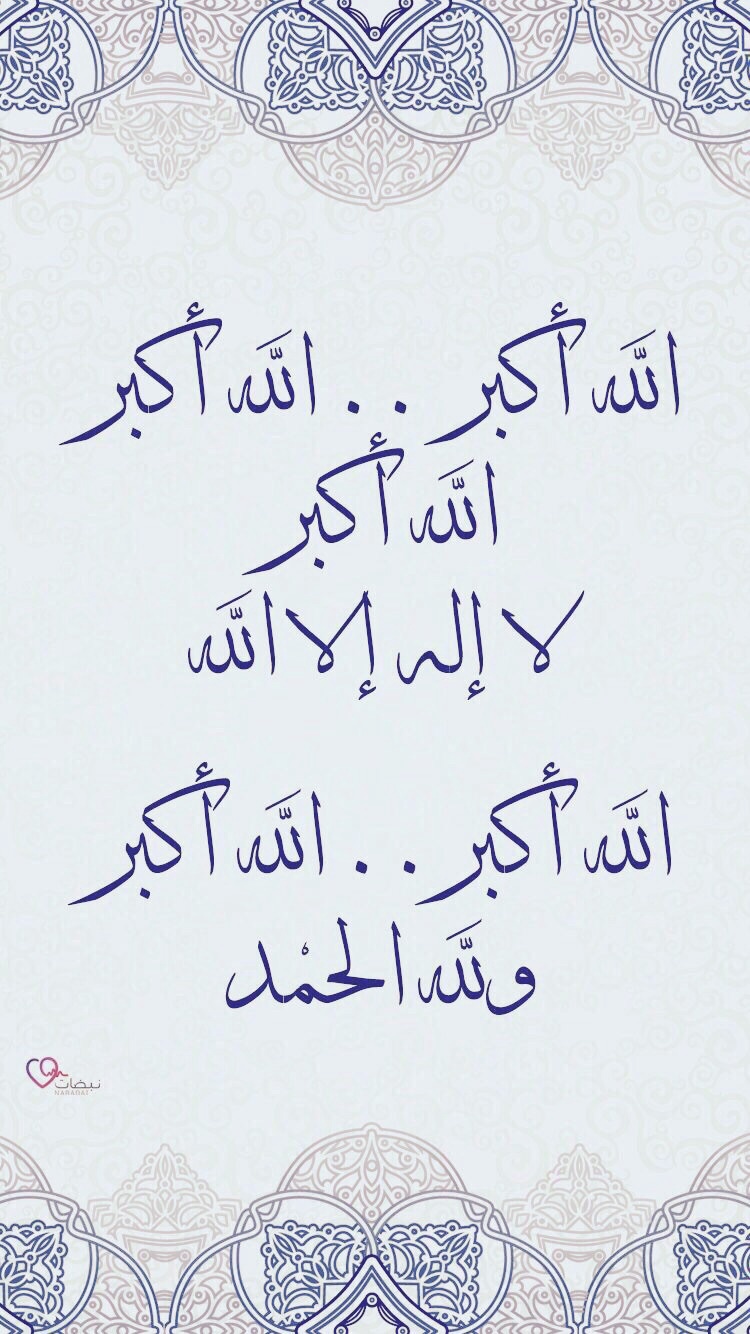 الله أكبر . . الله أكبر
الله أكبر
لا إله إلا الله
الله أكبر . . الله أكبر
ولله الحمْد
نبضات
NABADAT